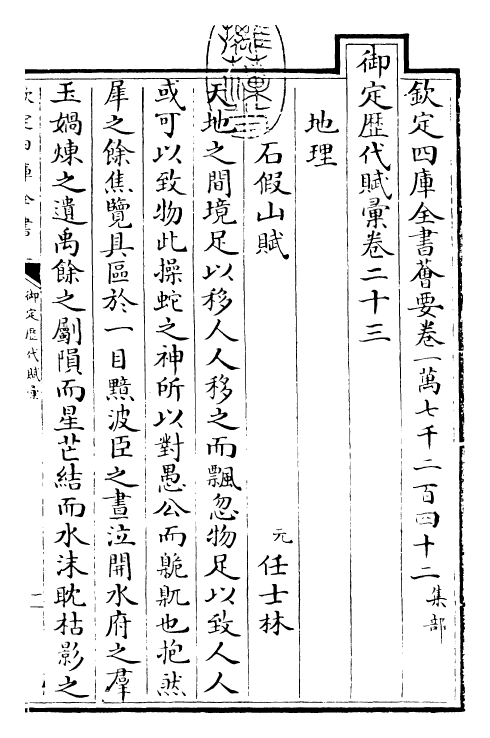 欽定四庫全書薈要卷一萬七千二百四十二 集部
御定歴代賦彙卷二十三
地理
石假山賦 元 任士林
天地之間境足以移人人移之而飄忽物足以致人人
或可以致物此操蛇之神所以對愚公而臲卼也抱然
犀之餘焦覽具區於一目黥波臣之晝泣開水府之羣
玉媧煉之遺禹餘之劚隕而星芒結而水沫耽枯影之
御定歴代賦彙